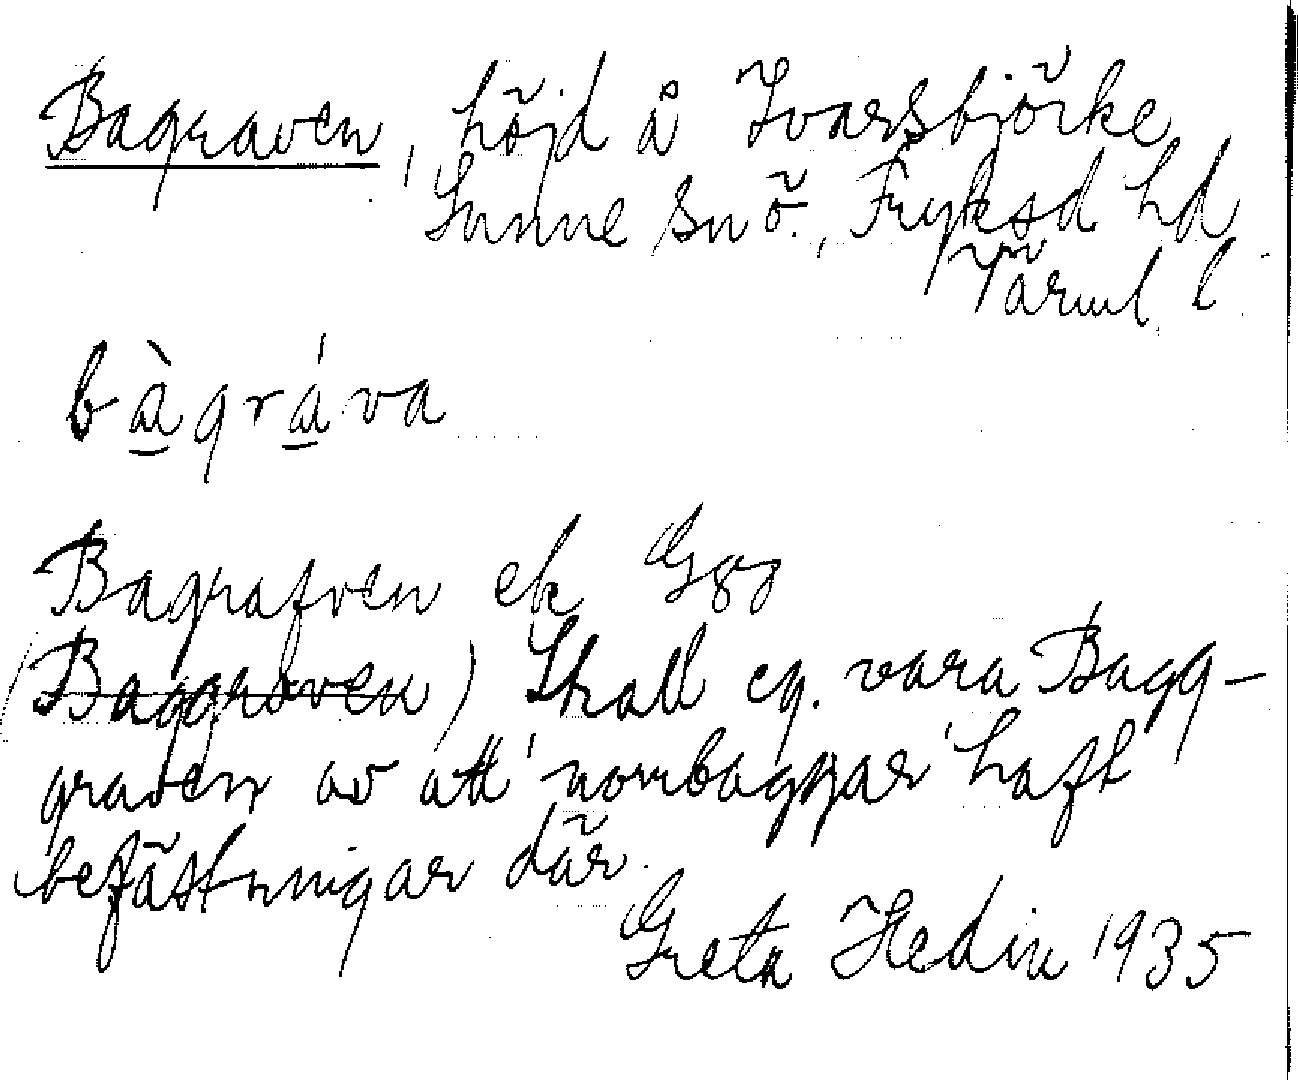 Bagraven, höjd å Ivarsbjörke,
Sunne snö., Fryksd hd
Värml l.
bàgráva
Bagrafven ek G80
(Baggraven) Skall eg. vara Bagg-
graven av att 'norrbaggar' haft
befästningar där.
Greta Hedin 1935